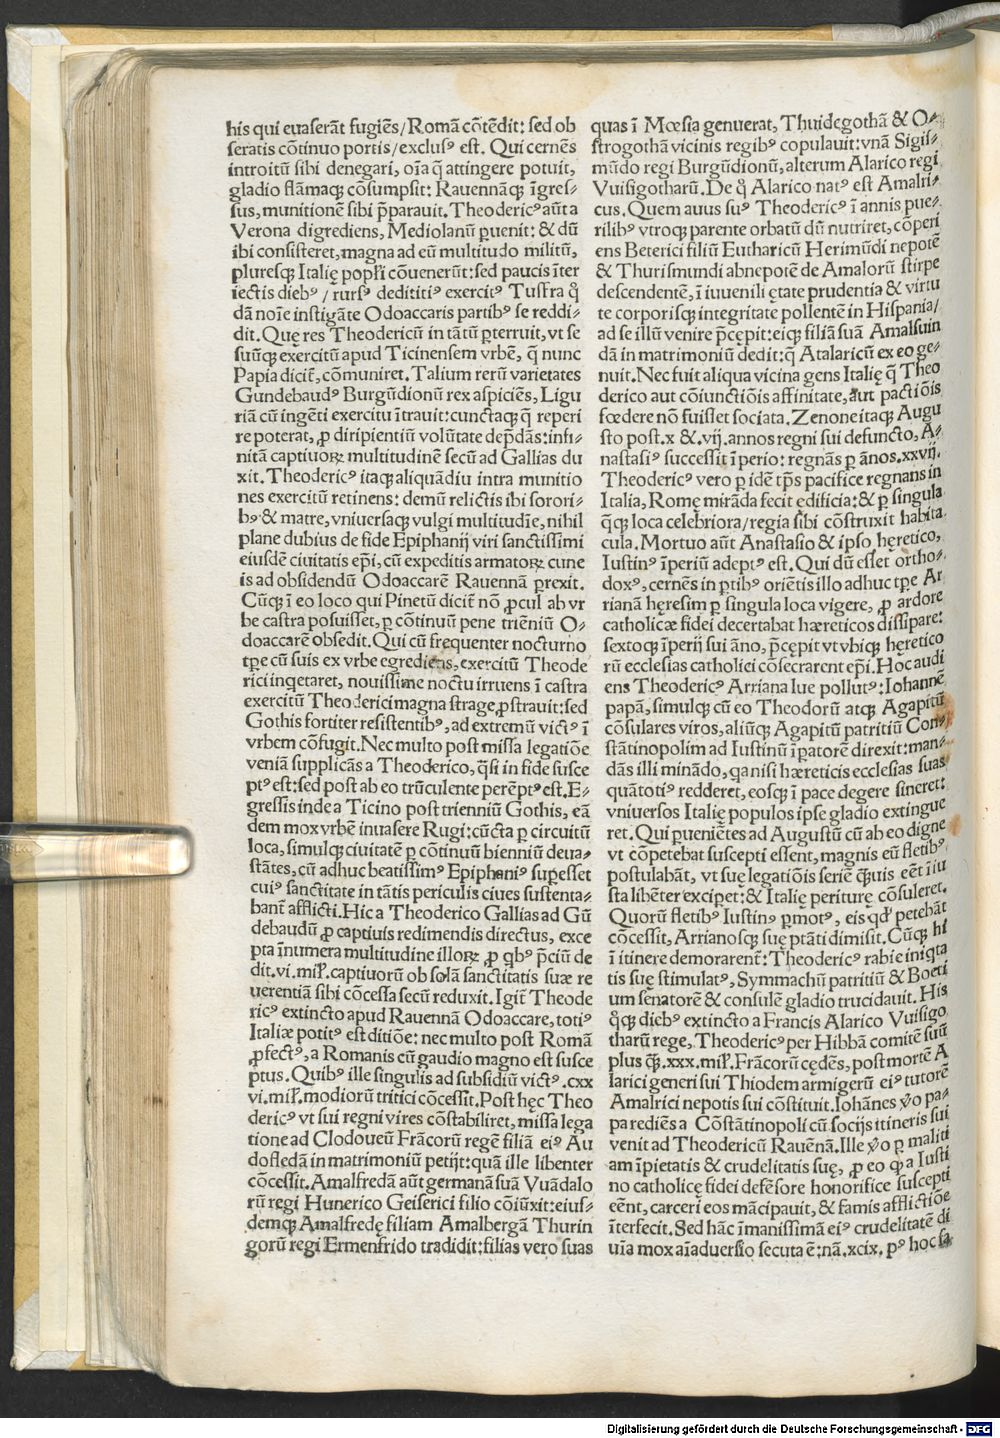 his qui euaserāt fugiēs/Romā cōtēdit: sed ob
seratis cōtinuo portis/exclusꝰ est. Qui cernēs
introitū sibi denegari, oīa q̄ attingere potuit,
gladio flāmaqꝫ cōsumpsit: Rauennāqꝫ īgres⸗
sus, munitionē sibi p̄parauit. Theodericꝰ aūt a
Verona digrediens, Mediolanū ꝑuenit: & dū
ibi consisteret, magna ad eū multitudo militū,
pluresqꝫ Italię popl̄i cōuenerūt: sed paucis īter
iectis diebꝰ / rursꝰ dedititiꝰ exercitꝰ Tuffra q̄
dā noīe instigāte Odoaccaris partibꝰ se reddi⸗
dit. Quę res Theodericū in tātū ꝑterruit, vt se
suūqꝫ exercitū apud Ticinensem vrbē, q̄ nunc
Papia dicit̄, cōmuniret. Talium rerū varietates
Gundebaudꝰ Burgūdionū rex aspiciēs, Ligu
riā cū ingēti exercitu ītrauit: cunctaqꝫ q̄ reperi
re poterat, ꝓ diripientiū volūtate dep̄dās: infi⸗
nitā captiuoꝝ multitudinē secū ad Gallias du
xit. Theodericꝰ itaqꝫ aliquādiu intra munitio
nes exercitū retinens: demū relictis ibi sorori⸗
bꝰ & matre, vniuersaqꝫ vulgi multitudīe, nihil
plane dubius de fide Epiphanij viri sanctissimi
eiusdē ciuitatis ep̄i, cū expeditis armatoꝝ cune
is ad obsidendū Odoaccarē Rauennā ꝑrexit.
Cūqꝫ ī eo loco qui Pinetū dicit̄ nō ꝓcul ab vr
be castra posuisset, ꝑ cōtinuū pene triēniū O⸗
doaccarē obsedit. Qui cū frequenter nocturno
tp̄e cū suis ex vrbe egrediens, exercitū Theode
rici inq̄etaret, nouissime noctu irruens ī castra
exercitū Theoderici magna strage, ꝓstrauit: sed
Gothis fortiter resistentibꝰ, ad extremū victꝰ ī
vrbem cōfugit. Nec multo post missa legatiōe
veniā supplicās a Theoderico, q̄si in fide susce
ptꝰ est: sed post ab eo trūculente perēptꝰ est. E⸗
gressis inde a Ticino post trienniū Gothis, eā
dem mox vrbē inuasere Rugi: cūcta ꝑ circuitū
loca, simulqꝫ ciuitatē ꝑ cōtinuū bienniū deua⸗
stātes, cū adhuc beatissimꝰ Epiphaniꝰ suꝑesset
cuiꝰ sanctitate in tātis periculis ciues sustenta⸗
bant̄ afflicti. Hic a Theoderico Gallias ad Gū
debaudū ꝓ captiuis redimendis directus, exce
pta īnumera multitudine illoꝝ, ꝓ qbꝰ p̄ciū de
dit. vi. mil̄. captiuorū ob solā sanctitatis suæ re
uerentiā sibi cōcessa secū reduxit. Igit̄ Theode
ricꝰ extincto apud Rauennā Odoaccare, totiꝰ
Italiæ potitꝰ est ditiōe: nec multo post Romā
ꝓfectꝰ, a Romanis cū gaudio magno est susce
ptus. Quibꝰ ille singulis ad subsidiū victꝰ .cxx
vi. mil̄. modiorū tritici cōcessit. Post hęc Theo
dericꝰ vt sui regni vires cōstabiliret, missa lega
tione ad Clodoueū Frācorū regē filiā eiꝰ Au
dofledā in matrimoniū petijt: quā ille libenter
cōcessit. Amalfredā aūt germanā suā Vuādalo
rū regi Hunerico Geiserici filio cōiūxit: eius⸗
demqꝫ Amalfredę filiam Amalbergā Thurin
gorū regi Ermenfrido tradidit: filias vero suas
quas ī Mœsia genuerat, Thuidegothā & O⸗
strogothā vicinis regibꝰ copulauit: vnā Sigis⸗
mūdo regi Burgūdionū, alterum Alarico regi
Vuisigotharū. De q̄ Alarico natꝰ est Amalri⸗
cus. Quem auus suꝰ Theodericꝰ ī annis pue⸗
rilibꝰ vtroqꝫ parente orbatū dū nutriret, cōperi
ens Beterici filiū Eutharicū Herimūdi nepotē
& Thurismundi abnepotē de Amalorū stirpe
descendentē, ī iuuenili ętate prudentia & virtu
te corporisqꝫ integritate pollentē in Hispania/
ad se illū venire p̄cępit: eiqꝫ filiā suā Amalsuin
dā in matrimoniū dedit: q̄ Atalaricū ex eo ge⸗
nuit. Nec fuit aliqua vicina gens Italię q̄ Theo
derico aut cōiunctiōis affinitate, aut pactiōis
fœdere nō fuisset sociata. Zenone itaqꝫ Augu
sto post. x &. vij. annos regni sui defuncto, A⸗
nastasiꝰ successit īperio: regnās ꝑ ānos. xxvij.
Theodericꝰ vero ꝑ idē tp̄s pacifice regnans in
Italia, Romę mirāda fecit ędificia: & ꝑ singula
q̄qꝫ loca celebriora/regia sibi cōstruxit habita
cula. Mortuo aūt Anastasio & ipso hęretico,
Iustinꝰ īperiū adeptꝰ est. Qui dū esset ortho⸗
doxꝰ, cernēs in ꝑtibꝰ oriētis illo adhuc tp̄e Ar
rianā hęresim ꝑ singula loca vigere, ꝓ ardore
catholicæ fidei decertabat hæreticos dissipare:
sextoqꝫ īperij sui āno, p̄cępit vt vbiqꝫ hęretico
rū ecclesias catholici cōsecrarent ep̄i. Hoc audi
ens Theodericꝰ Arriana lue pollutꝰ: Iohannē
papā, simulqꝫ cū eo Theodorū atqꝫ Agapitū
cōsulares viros, aliūqꝫ Agapitū patritiū Con⸗
stātinopolim ad Iustinū īꝑatorē direxit: man⸗
dās illi minādo, qa nisi hæreticis ecclesias suas
quātotiꝰ redderet, eosqꝫ ī pace degere sineret:
vniuersos Italię populos ipse gladio extingue
ret. Qui ꝑueniētes ad Augustū cū ab eo digne
vt cōpetebat suscepti essent, magnis eū fletibꝰ
postulabāt, vt suę legatiōis seriē q̄uis eēt īiu
sta libēter exciꝑet: & Italię periturę cōsuleret.
Quorū fletibꝰ Iustinꝰ ꝑmotꝰ, eis qd̄ petebāt
cōcessit, Arrianosqꝫ suę ptāti dimisit. Cūqꝫ hi
ī itinere demorarent̄: Theodericꝰ rabie iniqta
tis suę stimulatꝰ, Symmachū patritiū & Boeti
um senatorē & consulē gladio trucidauit. His
q̄qꝫ diebꝰ extincto a Francis Alarico Vuisigo
tharū rege, Theodericꝰ per Hibbā comitē suū
plus q̄ꝫ .xxx. mil̄. Frācorū cędēs, post mortē A
larici generi sui Thiodem armigerū eiꝰ tutorē
Amalrici nepotis sui cōstituit. Iohānes v̄o pa⸗
pa rediēs a Cōstātinopoli cū socijs itineris sui
venit ad Theodericū Rauēnā. Ille v̄o ꝑ maliti
am īpietatis & crudelitatis suę, ꝓ eo q̄ a Iusti
no catholicę fidei defēsore honorifice suscepti
eēnt, carceri eos mācipauit, & famis afflictiōe
īterfecit. Sed hāc īmanissimā eiꝰ crudelitatē di
uīa mox aīaduersio secuta ē: nā. xcix. pꝰ hoc sa
Digitalisierung gefördert durch die Deutsche Forschungsgemeinschaft - DFG